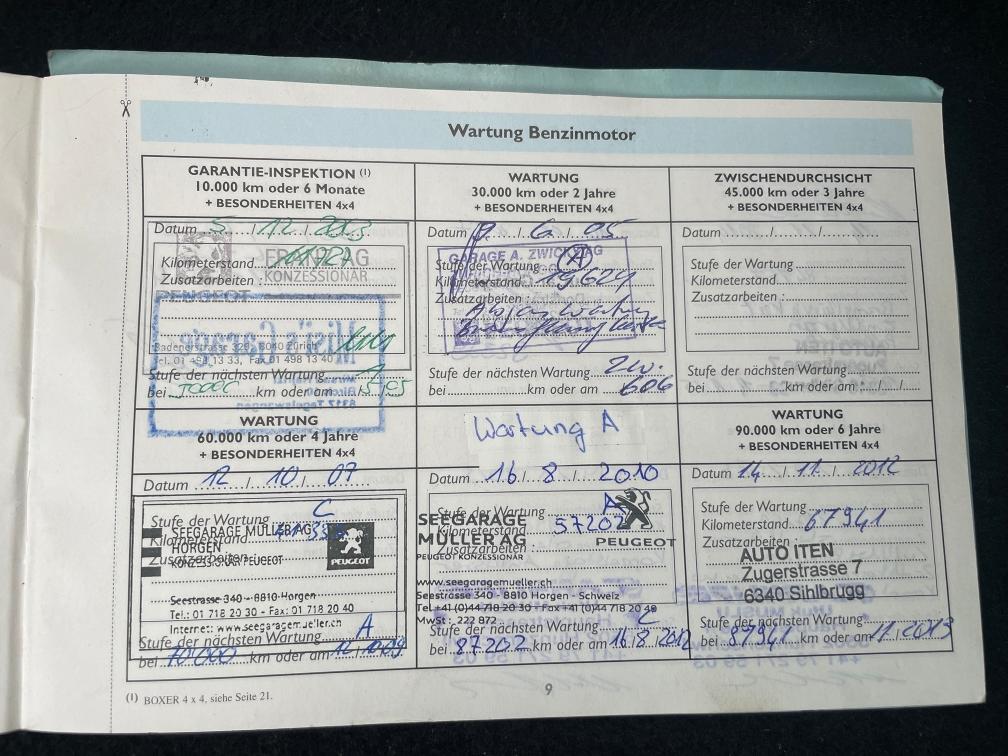 Wartung Benzinmotor
GARANTIE-INSPEKTION (1)
10.000 km oder 6 Monate
+ BESONDERHEITEN 4x4
Datum 5. / 12. / 2003
Kilometerstand
KONZESSIONÄR
Zusatzarbeiten :
PEUGEOT
Badenerstrasse 329, 8040 Zürich
Tel. 01 491 13 33, Fax 01 498 13 40
Stufe der nächsten Wartung
bei km oder am
WARTUNG
30.000 km oder 2 Jahre
+ BESONDERHEITEN 4x4
Datum / 6 / 05
GARAGE A. ZWICK AG
Stufe der Wartung : A
Kilometerstand : 19.624
Zusatzarbeiten :
Stufe der nächsten Wartung
bei km oder am 606
ZWISCHENDURCHSICHT
45.000 km oder 3 Jahre
+ BESONDERHEITEN 4x4
Datum / /
Stufe der Wartung
Kilometerstand
Zusatzarbeiten :
Stufe der nächsten Wartung
bei km oder am / /
WARTUNG
60.000 km oder 4 Jahre
+ BESONDERHEITEN 4x4
Datum 12 / 10 / 07
Stufe der Wartung C
SEEGARAGE MÜLLER AG
Kilometerstand
HORGEN
Zusatzarbeiten
KONZESSIONÄR PEUGEOT
PEUGEOT
Seestrasse 340 - 8810 Horgen
Tel.: 01 718 20 30 - Fax: 01 718 20 40
Internet: www.seegaragemueller.ch
Stufe der nächsten Wartung A
bei km oder am
Wartung A
Datum 16 / 8 / 2010
Stufe der Wartung A
SEEGARAGE
Kilometerstand 57202
MÜLLER AG
Zusatzarbeiten
PEUGEOT
PEUGEOT KONZESSIONÄR
www.seegaragemueller.ch
Seestrasse 340 - 8810 Horgen - Schweiz
Tel +41 (0)44 718 20 30 - Fax +41 (0)44 718 20 40
MwSt : 222 872
Stufe der nächsten Wartung C
bei 87202 km oder am 16/8/2012
WARTUNG
90.000 km oder 6 Jahre
+ BESONDERHEITEN 4x4
Datum 14. / 11. / 2012
Stufe der Wartung
Kilometerstand 67941
Zusatzarbeiten :
AUTO ITEN
Zugerstrasse 7
6340 Sihlbrugg
Stufe der nächsten Wartung
bei 87941 km oder am 11/2013
(1) BOXER 4 x 4, siehe Seite 21.
9